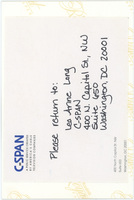 Please return to:
Lea Anne Long
C-SPAN
400 N. Capitol St., NW
Suite 650
Washington, DC 20001
C-SPAN